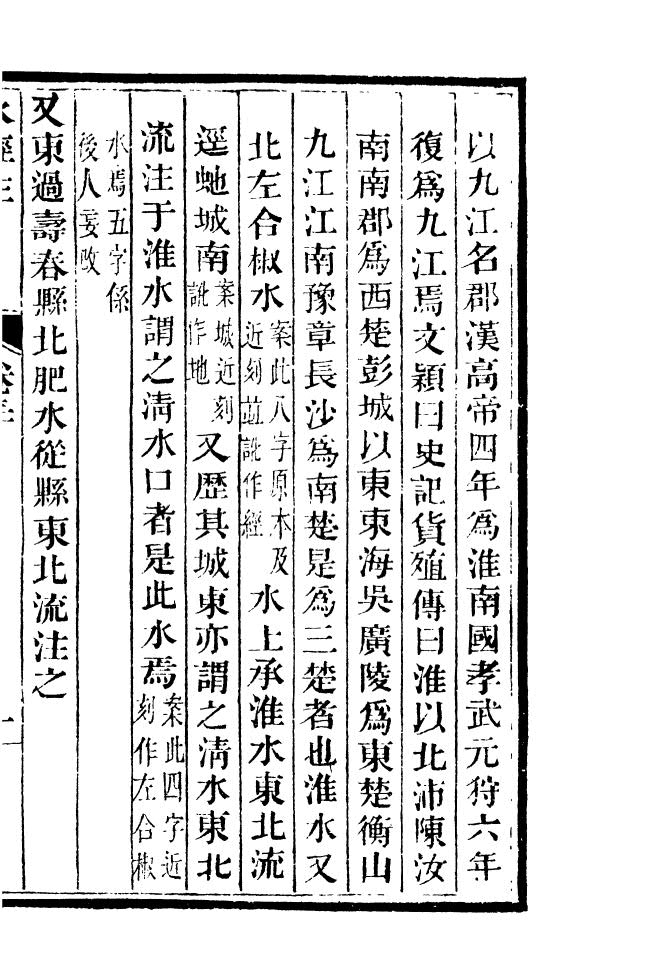 以九江名郡漢高帝四年爲淮南國孝武元狩六年
復爲九江焉文穎曰史記貨殖傳曰淮以北沛陳汝
南南郡爲西楚彭城以東東海吳廣陵爲東楚衡山
九江江南豫章長沙爲南楚是爲三楚者也淮水又
北左合椒水案此八字原本及近刻並訛作經水上承淮水東北流
逕虵城南案城近刻訛作地又歷其城東亦謂之淸水東北
流注于淮水謂之淸水口者是此水焉案此四字近刻作左合椒
水焉五字係後人妄改
又東過壽春縣北肥水從縣東北流注之
水經注 卷三十 一